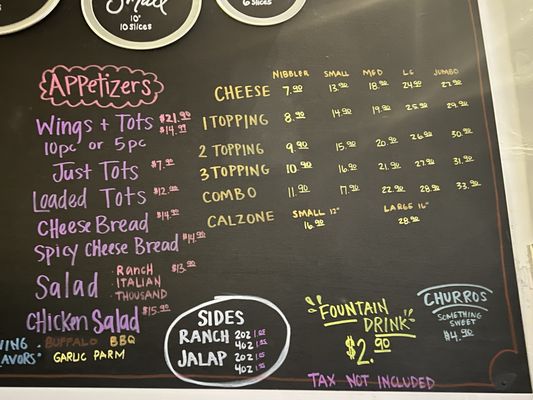 Small
10"
10 SLICES
6 SLICES
APPETIZERS
WINGS + TOTS $21.90
10PC or 5PC $14.99
JUST TOTS $7.90
LOADED TOTS $12.90
CHEESE BREAD $14.90
SPICY CHEESE BREAD $14.90
SALAD · RANCH $13.90
· ITALIAN
· THOUSAND
CHICKEN SALAD $15.90
BUFFALO BBQ
GARLIC PARM
NIBBLER SMALL MED LG JUMBO
CHEESE 7.90 13.90 18.90 24.90 27.90
1 TOPPING 8.90 14.90 19.90 25.90 29.90
2 TOPPING 9.90 15.90 20.90 26.90 30.90
3 TOPPING 10.90 16.90 21.90 27.90 31.90
COMBO 11.90 17.90 22.90 28.90 33.90
CALZONE SMALL 12" LARGE 16"
16.90 28.90
SIDES
RANCH 2OZ
4OZ
JALAP 2OZ
4OZ
FOUNTAIN
DRINK
$2.90
CHURROS
SOMETHING
SWEET
$4.90
TAX NOT INCLUDED